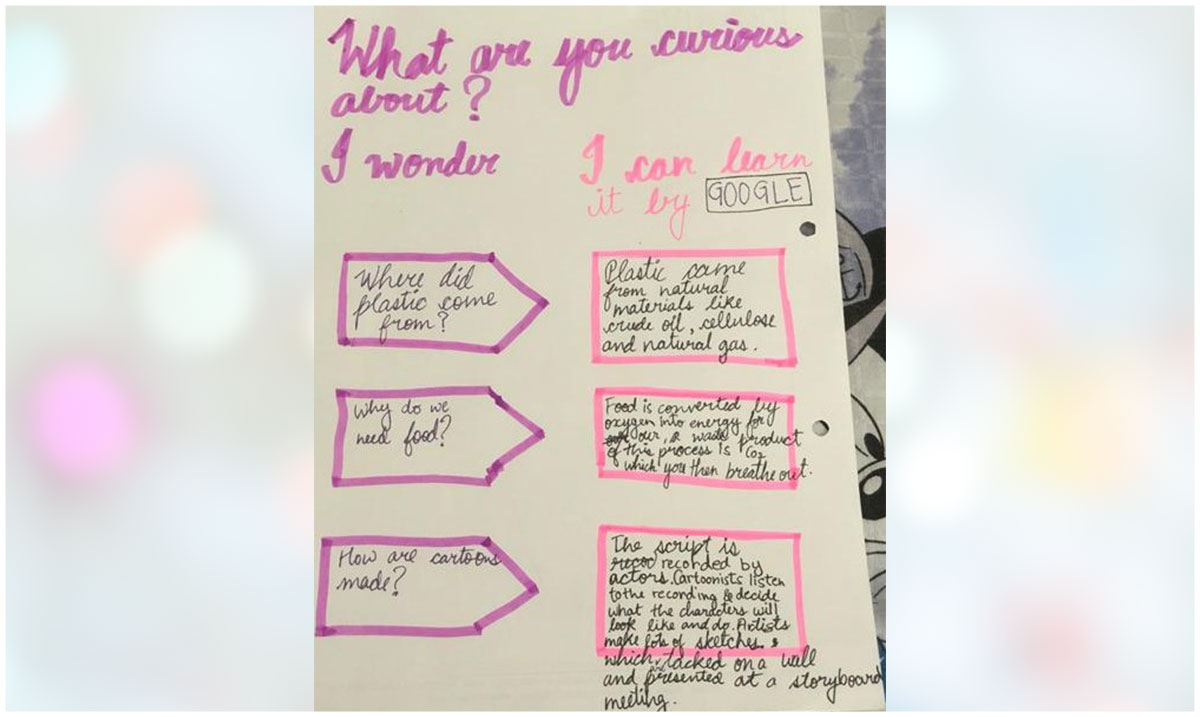 What are you curious
about?
I wonder
I can learn
it by GOOGLE
Where did
plastic come
from?
Plastic came
from natural
materials like
crude oil, cellulose
and natural gas.
Why do we
need food?
Food is converted by
oxygen into energy for
our, & waste product
of this process is CO2
which you then breathe out.
How are cartoons
made?
The script is
recorded by
actors. Cartoonists listen
to the recording & decide
what the characters will
look like and do. Artists
make lots of sketches.
which are tacked on a wall
and presented at a storyboard
meeting.